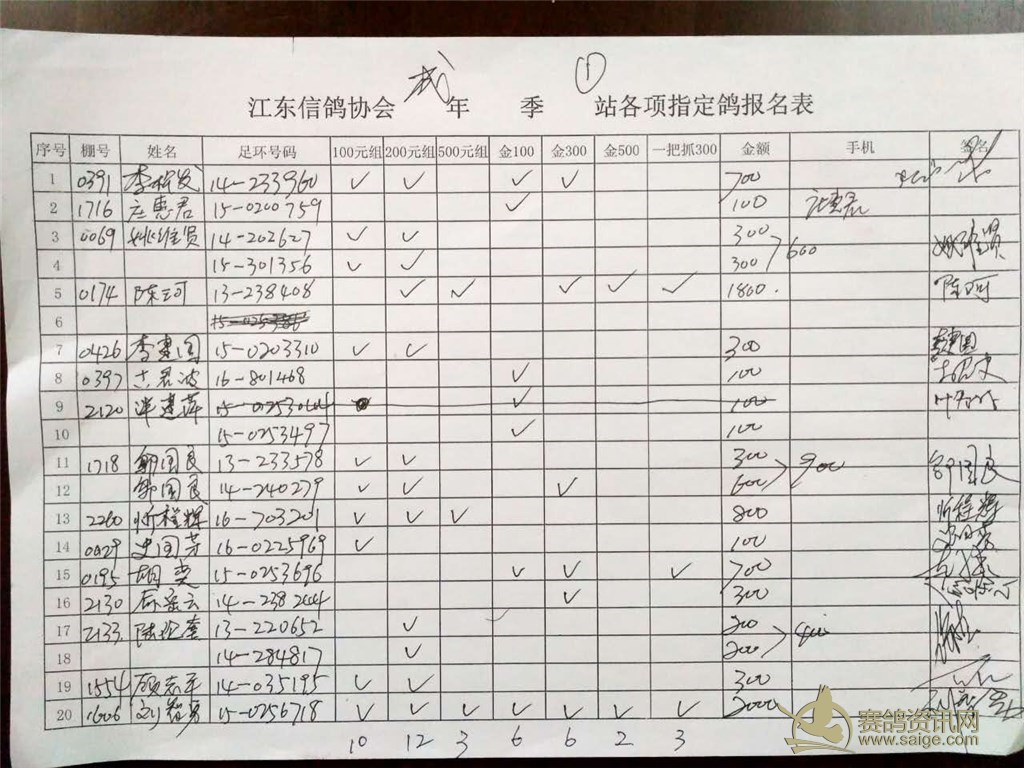 ①
江东信鸽协会 年 季 站各项指定鸽报名表
序号 棚号 姓名 足环号码 100元组 200元组 500元组 金100 金300 金500 一把抓300 金额 手机 签名
1 0391 14-233960 ✓ ✓ ✓ ✓ 700
2 1716 庄惠君 15-0200759 ✓ 100 庄惠君
3 0069 姚维贤 14-202627 ✓ ✓ 300 600 姚维贤
4 15-301356 ✓ ✓ 300
5 0174 陈珂 13-238408 ✓ ✓ ✓ ✓ ✓ 1800. 陈珂
6
7 0426 李惠国 15-0203310 ✓ ✓ 300
8 0397 16-801468 ✓ 100
9 2120 ✓ 100
10 15-0253497 ✓ 100
11 1718 郭国良 13-233578 ✓ ✓ 300 900 郭国良
12 郭国良 14-240279 ✓ ✓ ✓ 600
13 2260 忻程辉 16-703201 ✓ ✓ ✓ 800 忻程辉
14 0029 史国芳 16-0225969 ✓ 100
15 0195 胡奕 15-0253696 ✓ ✓ ✓ 700
16 2130 14-238 ✓ 300
17 2133 13-220652 ✓ 200 400
18 14-284817 ✓ 200
19 1554 顾志平 14-035195 ✓ ✓ 300
20 1606 15-0256718 ✓ ✓ ✓ ✓ ✓ ✓ ✓ 2000
10 12 3 6 6 2 3
赛鸽资讯网
www.saige.com